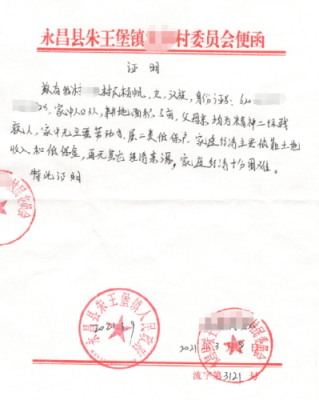 永昌县朱王堡镇 村委员会便函
证 明
兹有我村 村民杨帆,女,汉族,身份证:620
家中 口人,耕地面积5亩,父母亲均为精神二级残
疾人,家中无主要劳动者,属二类低保户,家庭经济主要依靠土地
收入和低保金,再无其它经济来源,家庭经济十分困难。
特此证明
村民委员会
永昌县朱王堡镇人民政府
2021.3.9
村民委员会
2021.3.8日
证字第3121号